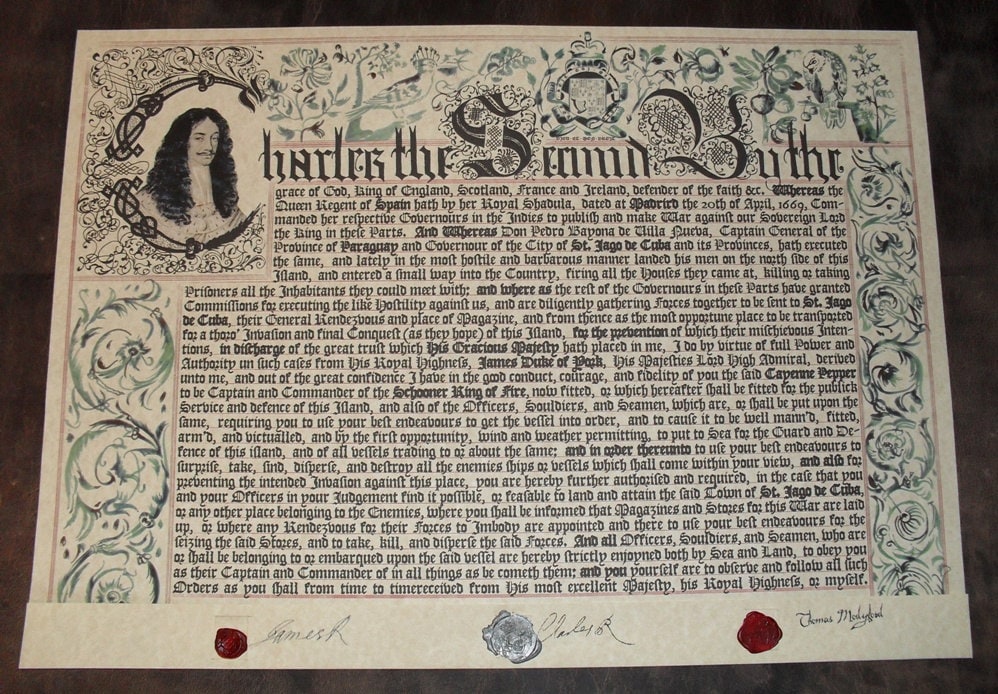 Charles the Second By the
grace of God, King of England, Scotland, France and Ireland, defender of the faith &c. Whereas the
Queen Regent of Spain hath by her Royal Shadula, dated at Madrird the 20th of April, 1669, Com-
manded her respective Governours in the Indies to publish and make War against our Sovereign Lord
the King in these Parts. And Whereas Don Pedro Bayona de Villa Nueva, Captain General of the
Province of Paraguay and Governour of the City of St. Jago de Cuba and its Provinces, hath executed
the same, and lately in the most hostile and barbarous manner landed his men on the north side of this
Island, and entered a small way into the Country, firing all the Houses they came at, killing or taking
Prisoners all the Inhabitants they could meet with: and where as the rest of the Governours in these Parts have granted
Commissions for executing the like Hostility against us, and are diligently gathering Forces together to be sent to St. Jago
de Cuba, their General Rendezvous and place of Magazine, and from thence as the most opportune place to be transported
for a thoro' Invasion and final Conquest (as they hope) of this Island, for the prevention of which their mischievous Inten-
tions, in discharge of the great trust which His Gracious Majesty hath placed in me, I do by virtue of full Power and
Authority un such cases from His Royal Highness, James Duke of York, His Majesties Lord High Admiral, derived
unto me, and out of the great confidence I have in the good conduct, courage, and fidelity of you the said Cayenne Pepper
to be Captain and Commander of the Schooner Ring of Fire, now fitted, or which hereafter shall be fitted for the publick
Service and defence of this Island, and also of the Officers, Souldiers, and Seamen, which are, or shall be put upon the
same, requiring you to use your best endeavours to get the vessel into order, and to cause it to be well mann'd, fitted,
arm'd, and victualled, and by the first opportunity, wind and weather permitting, to put to Sea for the Guard and De-
fence of this island, and of all vessels trading to or about the same; and in order thereunto to use your best endeavours to
surprise, take, sind, disperse, and destroy all the enemies ships or vessels which shall come within your view, and also for
preventing the intended Invasion against this place, you are hereby further authorised and required, in the case that you
and your Officers in your Judgement find it possible, or feasable to land and attain the said Town of St. Jago de Cuba,
or any other place belonging to the Enemies, where you shall be informed that Magazines and Stores for this War are laid
up, or where any Rendezvous for their Forces to Imbody are appointed and there to use your best endeavours for the
seizing the said Stores, and to take, kill, and disperse the said Forces. And all Officers, Souldiers, and Seamen, who are
or shall be belonging to or embarqued upon the said vessel are hereby strictly enjoyned both by Sea and Land, to obey you
as their Captain and Commander of in all things as be cometh them; and you yourself are to observe and follow all such
Orders as you shall from time to timereceived from His most excellent Majesty, his Royal Highness, or myself.
James R
Charles R
Thomas Modyford